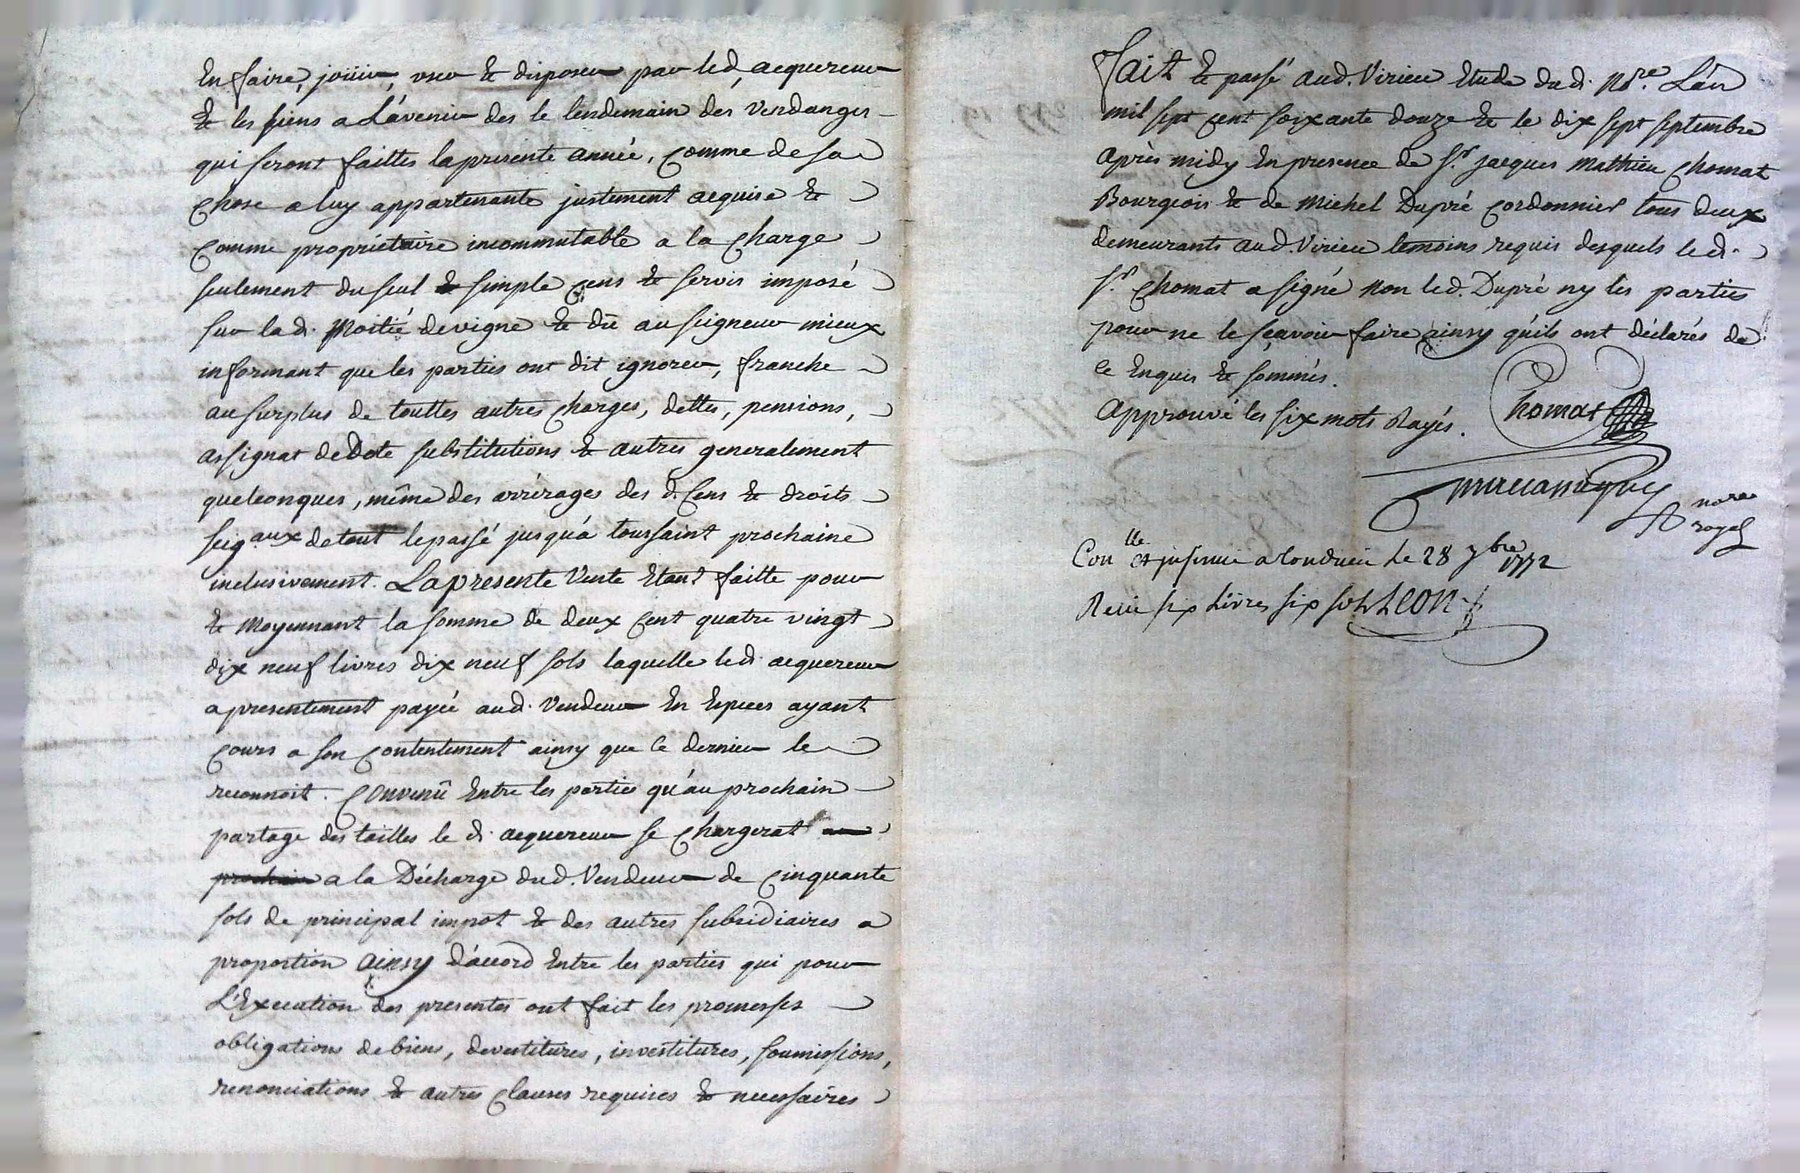 En faire, joüir, user & disposer par led. acquereur
& les siens a L'avenir des le lendemain des Vendanges
qui seront faittes la presente année, Comme de sa
Chose a luy appartenante justement acquise &
Comme propriétaire incommutable a la Charge
seulement du seul & simple Cens & servis imposé
sur lad. Moitié de vigne & dû au seigneur mieux
informant que les parties ont dit ignorer, franche
au surplus de touttes autres Charges, dettes, pensions,
assignat de Dote substitutions & autres generalement
quelconques, même des arrérages des d. Cens & droits
seig.aux de tout le passé jusqu'á toussaint prochaine
inclusivement. La presente Vente Etant faitte pour
& Moyennant la somme de deux Cent quatre vingt
dix neuf livres dix neuf sols laquelle led. acquereur
a presentement payée aud. Vendeur En Especes ayant
Cours a son Contentement ainsy que Ce dernier le
reconnoit. Convenû Entre les parties qu'au prochain
partage des tailles le d. acquereur se Chargerat
a la Décharge dud. Vendeur de Cinquante
sols de principal impot & des autres subsidiaires a
proportion ainsy d'accord Entre les parties qui pour
L'Execution des presentes ont fait les promesses
obligations de biens, devestitures, investitures, soumissions,
renonciations & autres Clauses requises & necessaires
Fait & passé aud. Virieu Etude dud. No.re L'an
mil sept Cent soixante douze & le dix sept septembre
après midy En presence de S.r jacques Mathieu Chomat
Bourgeois & de Michel Dupré Cordonnier tous deux
demeurants aud Virieu temoins requis desquels le d.
S.r Chomat a signé non led. Dupré ny les parties
pour ne le sçavoir faire ainsy qu'ils ont déclarés de
Ce Enquis & sommés.
Approuvé les six mots Rayés. Chomat
no.re
royal
Con.lle et insinué a Condrieu le 28 7bre 1772
Recu six Livres six sols LEON